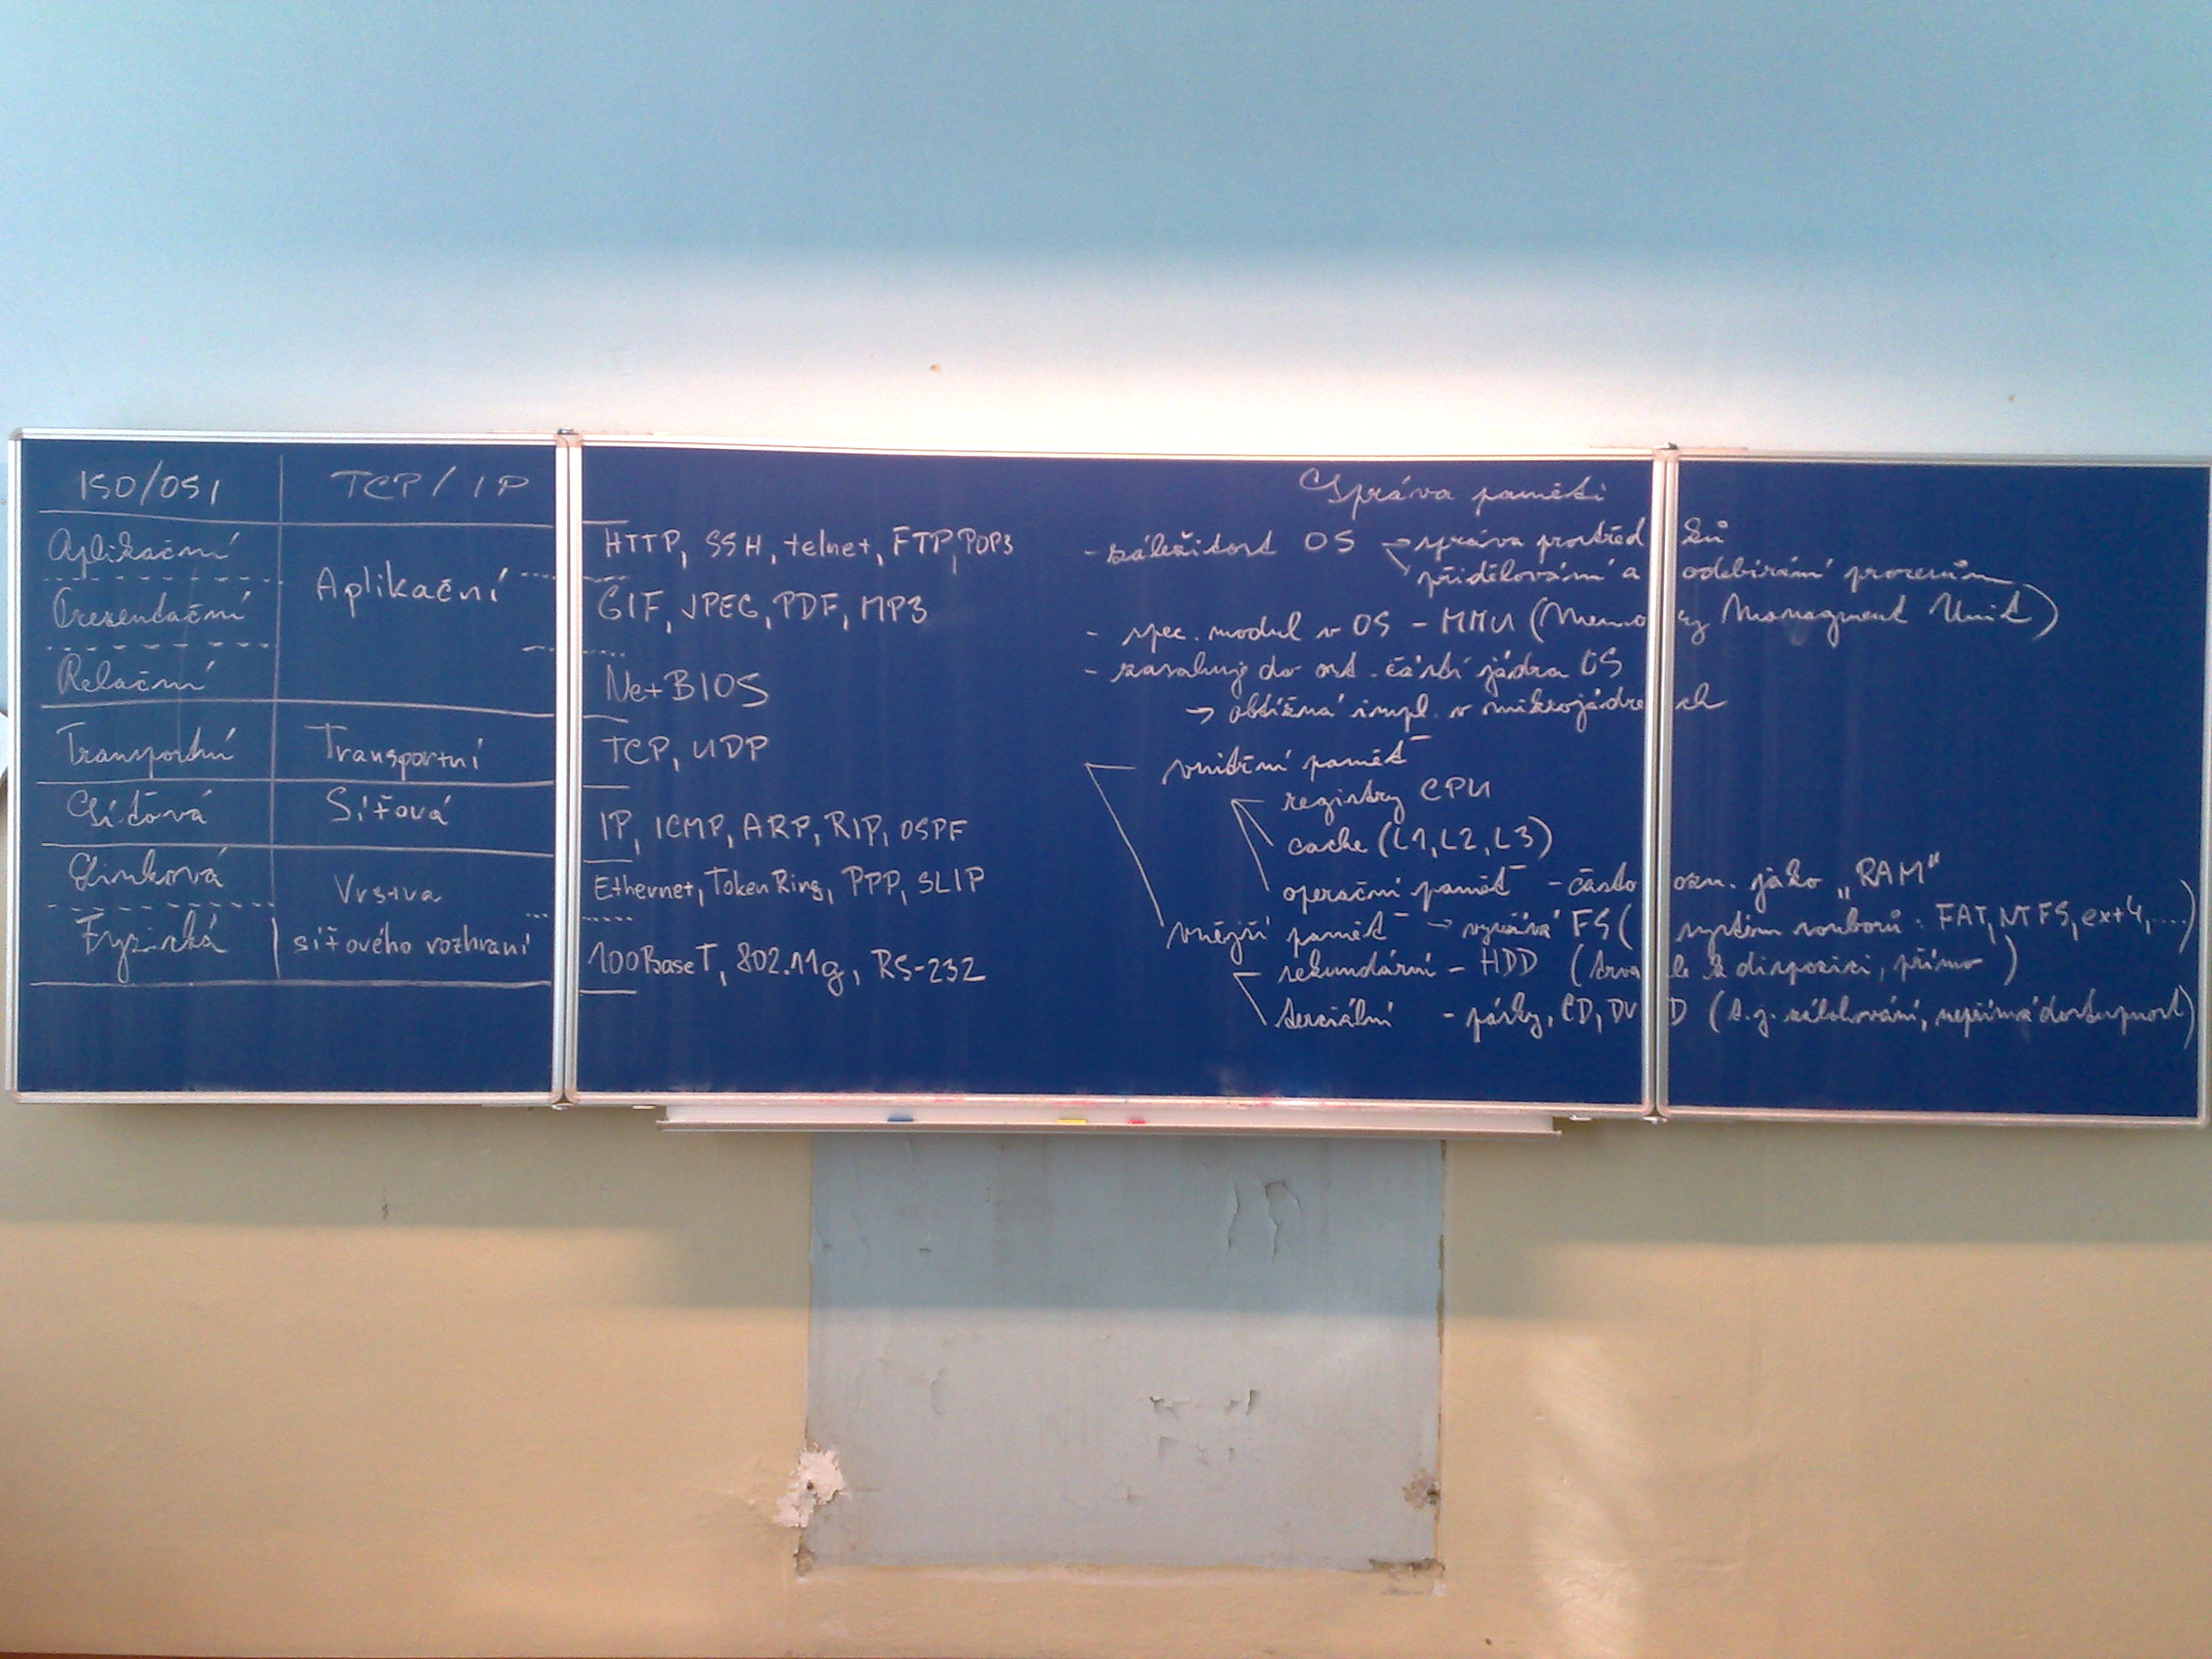 ISO/OSI TCP/IP
Aplikační Aplikační HTTP, SSH, telnet, FTP, POP3
Prezentační GIF, JPEG, PDF, MP3
Relační NetBIOS
Transportní Transportní TCP, UDP
Síťová Síťová IP, ICMP, ARP, RIP, OSPF
Linková Vrstva Ethernet, Token Ring, PPP, SLIP
Fyzická síťového rozhraní 100BaseT, 802.11g, RS-232
Správa paměti
- záležitost OS → správa prostředků
přidělování a odebírání procesům
- spec. modul v OS - MMU (Memory Managment Unit)
- zasahuje do ost. částí jádra OS
→ obtížná impl. v mikrojádrech
vnitřní paměť
registry CPU
cache (L1, L2, L3)
operační paměť - často ozn. jako „RAM"
vnější paměť → využívá FS (systém souborů: FAT, NTFS, ext4, ....)
sekundární - HDD (trvale k dispozici, přímo)
terciální - pásky, CD, DVD (t.j. zálohování, nepřímá dostupnost)